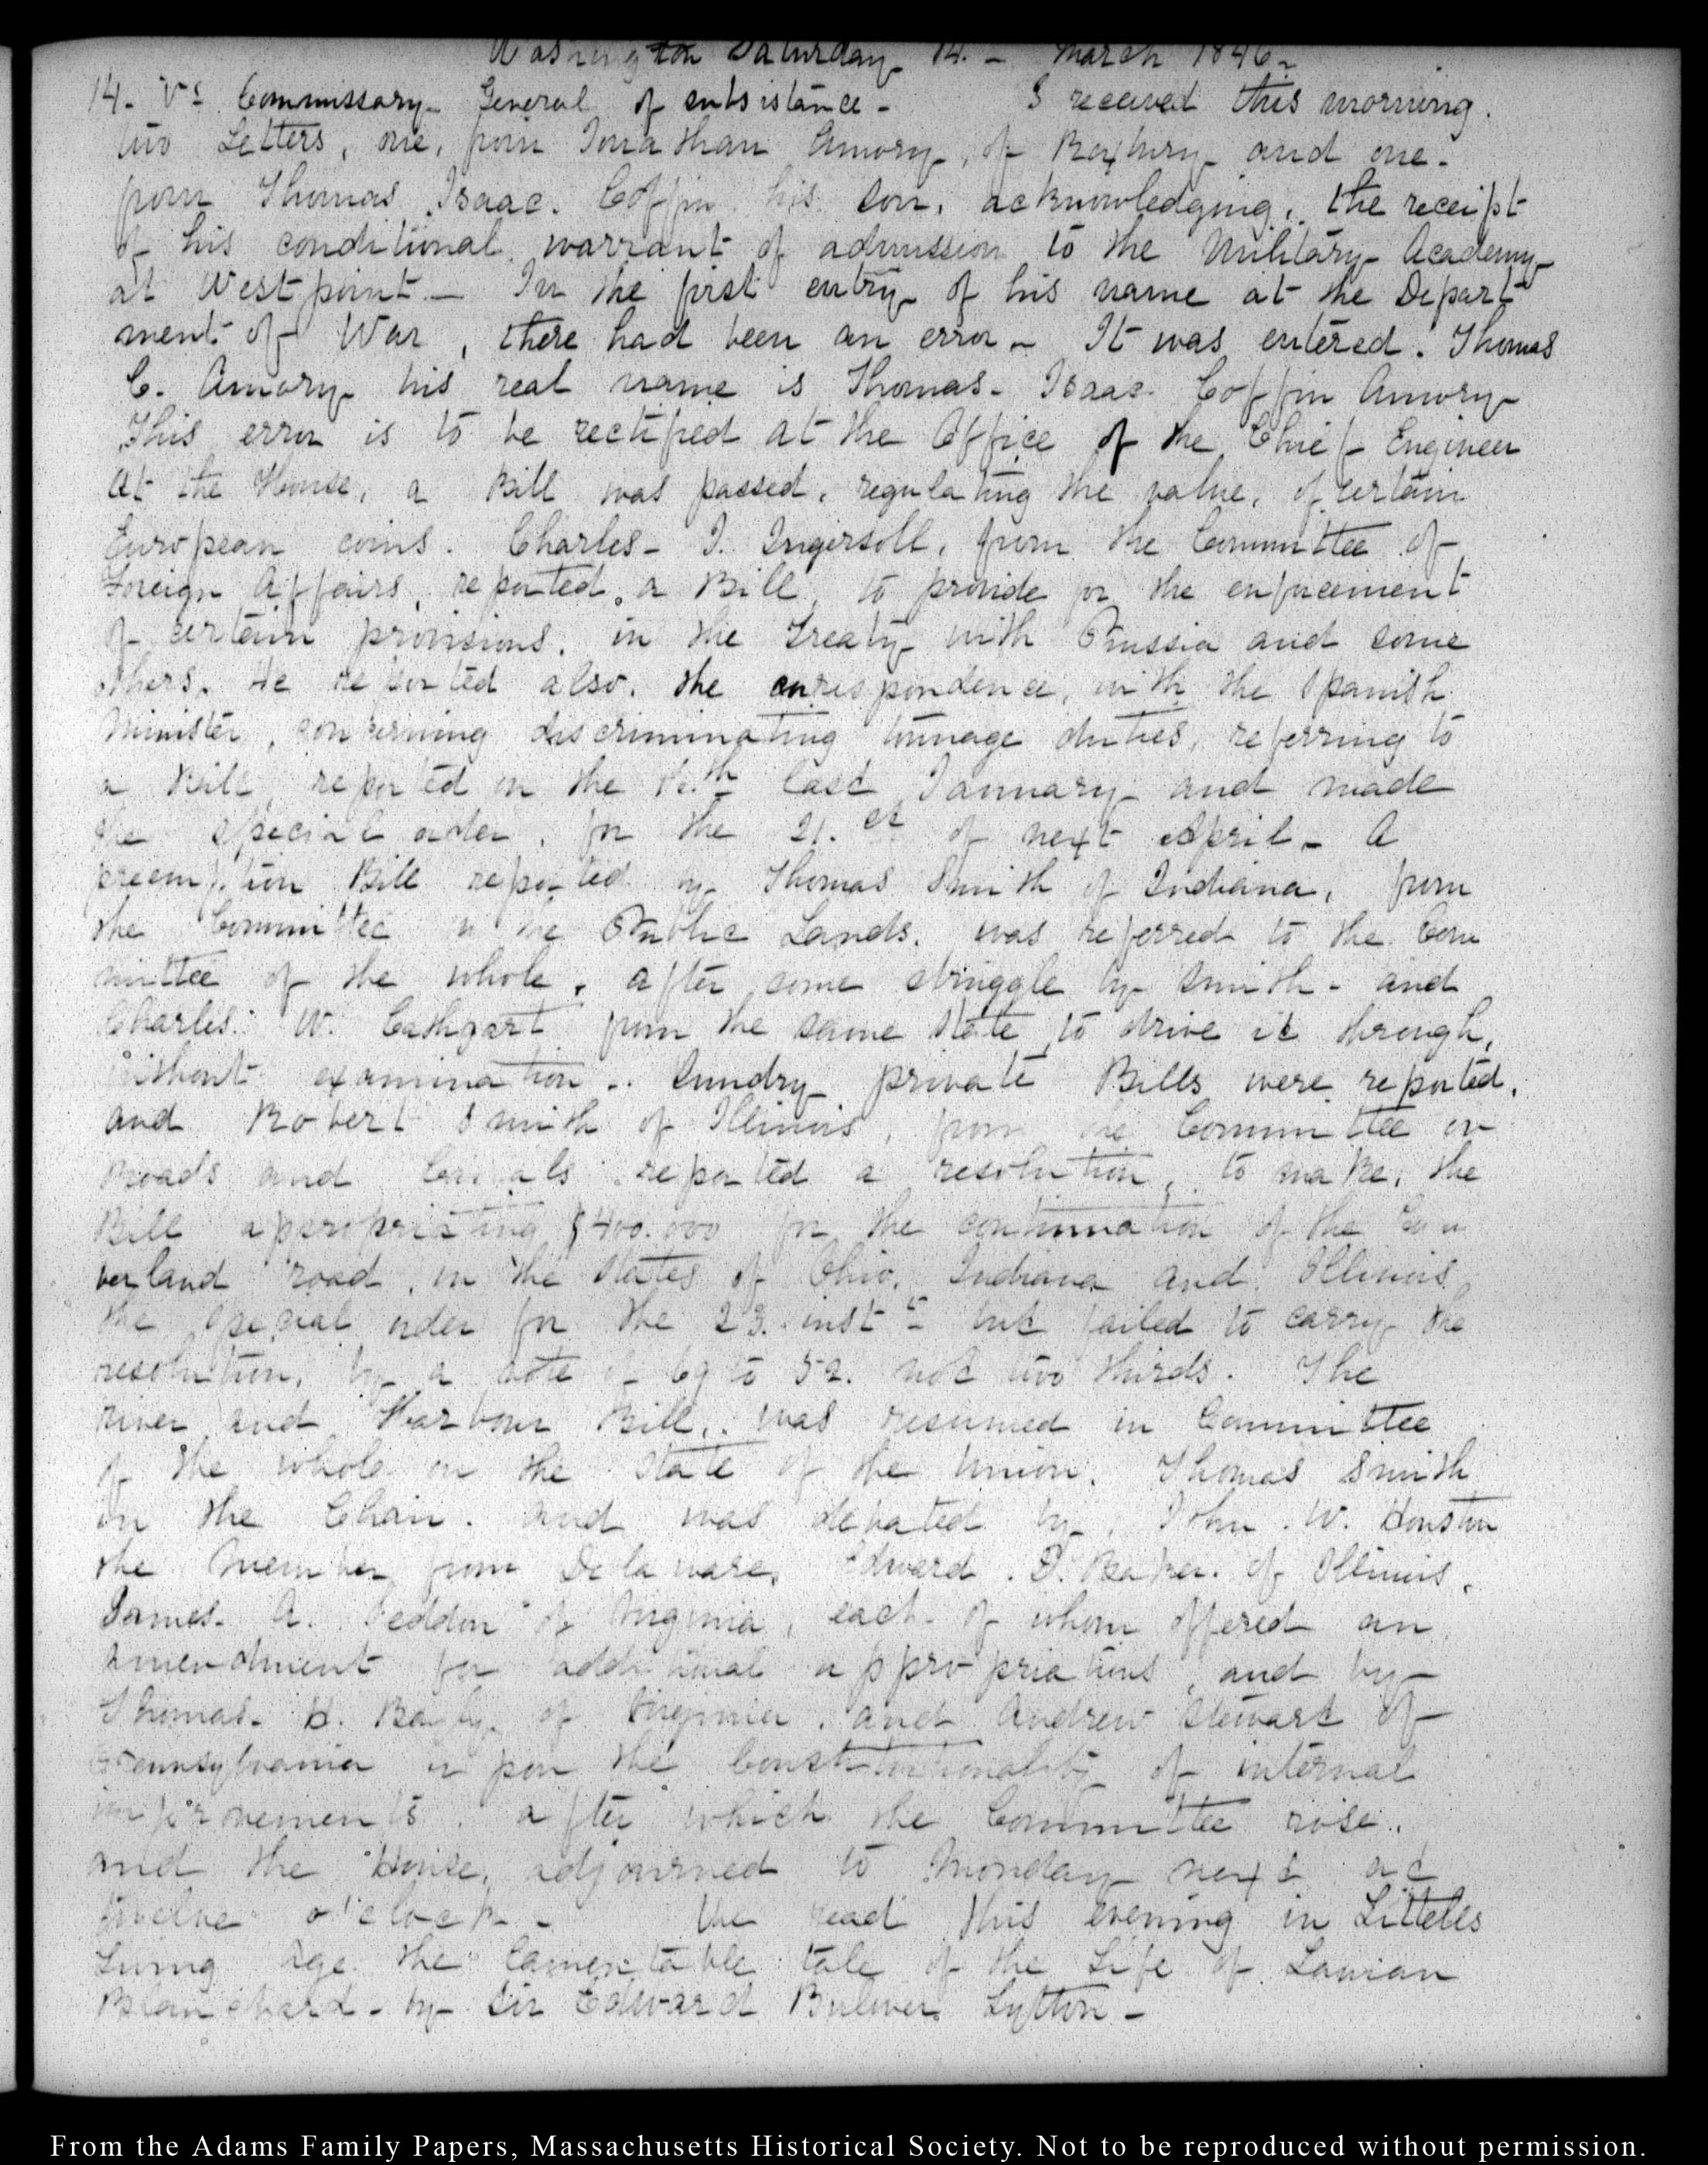 Washington Saturday 14. - March 1846.
14. Vs Commissary General of subsistance - I received this morning.
two Letters, one, from Jonathan Amory, of Roxbury and one.
from Thomas Isaac. Coffin his son, acknowledging, the receipt
of his conditional warrant of admission to the Military Academy
at West point - In the first entry of his name at the Depart
ment of War, there had been an error - It was entered. Thomas
C. Amory his real name is Thomas. Isaac Coffin Amory
This error is to be rectified at the Office of the Chief Engineer
At the House, a Bill was passed, regulating the value, of certain
European coins. Charles - J. Ingersoll, from the Committee of
Foreign Affairs, reported a Bill, to provide for the enforcement
of certain provisions. in the Treaty with Prussia and some
others. He reported also. the correspondence, with the Spanish
Minister, concerning discriminating tonnage duties, referring to
a Bill, reported on the th last January and made
the special order, for the 21.st of next April - A
preemption Bill reported by Thomas Smith of Indiana, from
the Committee on the Public Lands. was referred to the Com
mittee of the whole, after some struggle by Smith - and
Charles. W. Cathcart from the same State, to drive it through,
without examination.. Sundry private Bills were reported.
and Robert Smith of Illinois, from the Committee on
Roads and Canals reported a resolution, to make, the
Bill appropriating $400.000 for the continuation of the Cum
berland road, in the States of Ohio, Indiana and Illinois
the special order for the 23. inst - but failed to carry the
resolution, by a vote of 69 to 52. not two thirds. The
river and Harbour Bill, was resumed in Committee
of the whole on the State of the Union. Thomas Smith
in the Chair. and was debated by, John. W. Houston
the Member from Delaware, Edward. D. Baker. of Illinois,
James. A. Seddon of Virginia, each of whom offered an
amendment for additional appropriations, and by
Thomas. H. Bayly. of Virginia, and Andrew Stewart of
Pennsylvania upon the Constitutionality of internal
improvements. after which the Committee rose..
and the House, adjourned to Monday next at
twelve o'clock - We read this evening in Littels
Living Age the lamentable tale of the Life of Laman
Blanchard - by Sir Edward Bulwer Lytton -
From the Adams Family Papers, Massachusetts Historical Society. Not to be reproduced without permission.